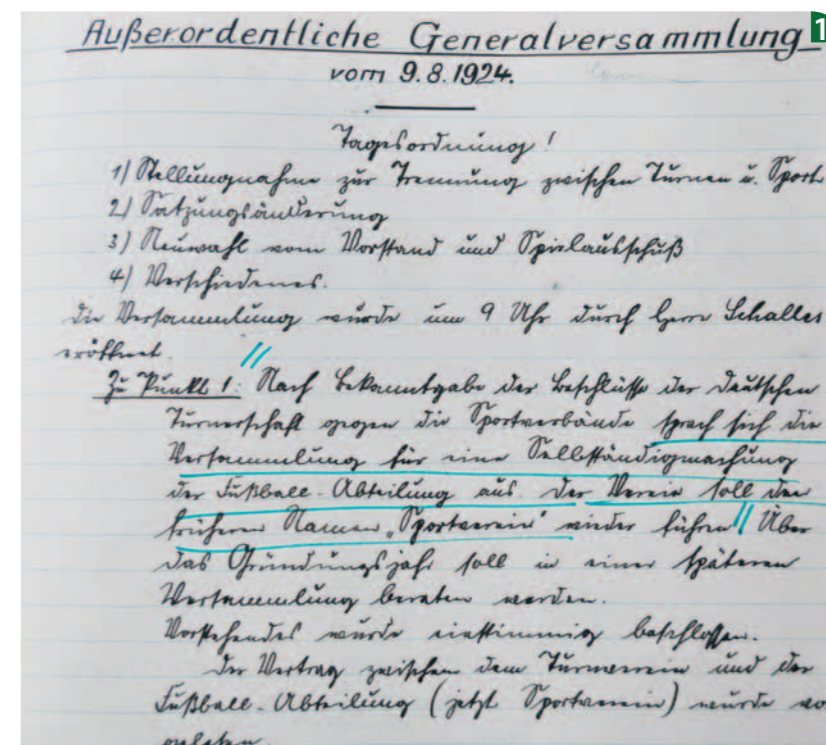 Außerordentliche Generalversammlung
1
vom 9.8.1924.
Tagesordnung!
1) Stellungnahme zur Trennung zwischen Turnen u. Sport
2) Satzungsänderung
3) Neuwahl vom Vorstand und Spielausschuß
4) Verschiedenes.
Die Versammlung wurde um 9 Uhr durch Herrn Schalles
eröffnet.
Zu Punkt 1: Nach Bekanntgabe der Beschlüsse der Deutschen
Turnerschaft gegen die Sportverbände sprach sich die
Versammlung für eine Selbständigmachung
der Fußball-Abteilung aus. Der Verein soll den
früheren Namen „Sportverein" wieder führen. Über
das Gründungsjahr soll in einer späteren
Versammlung beraten werden.
Vorstehendes wurde einstimmig beschlossen.
Der Vertrag zwischen dem Turnverein und der
Fußball-Abteilung (jetzt Sportverein) wurde vo
gelesen.